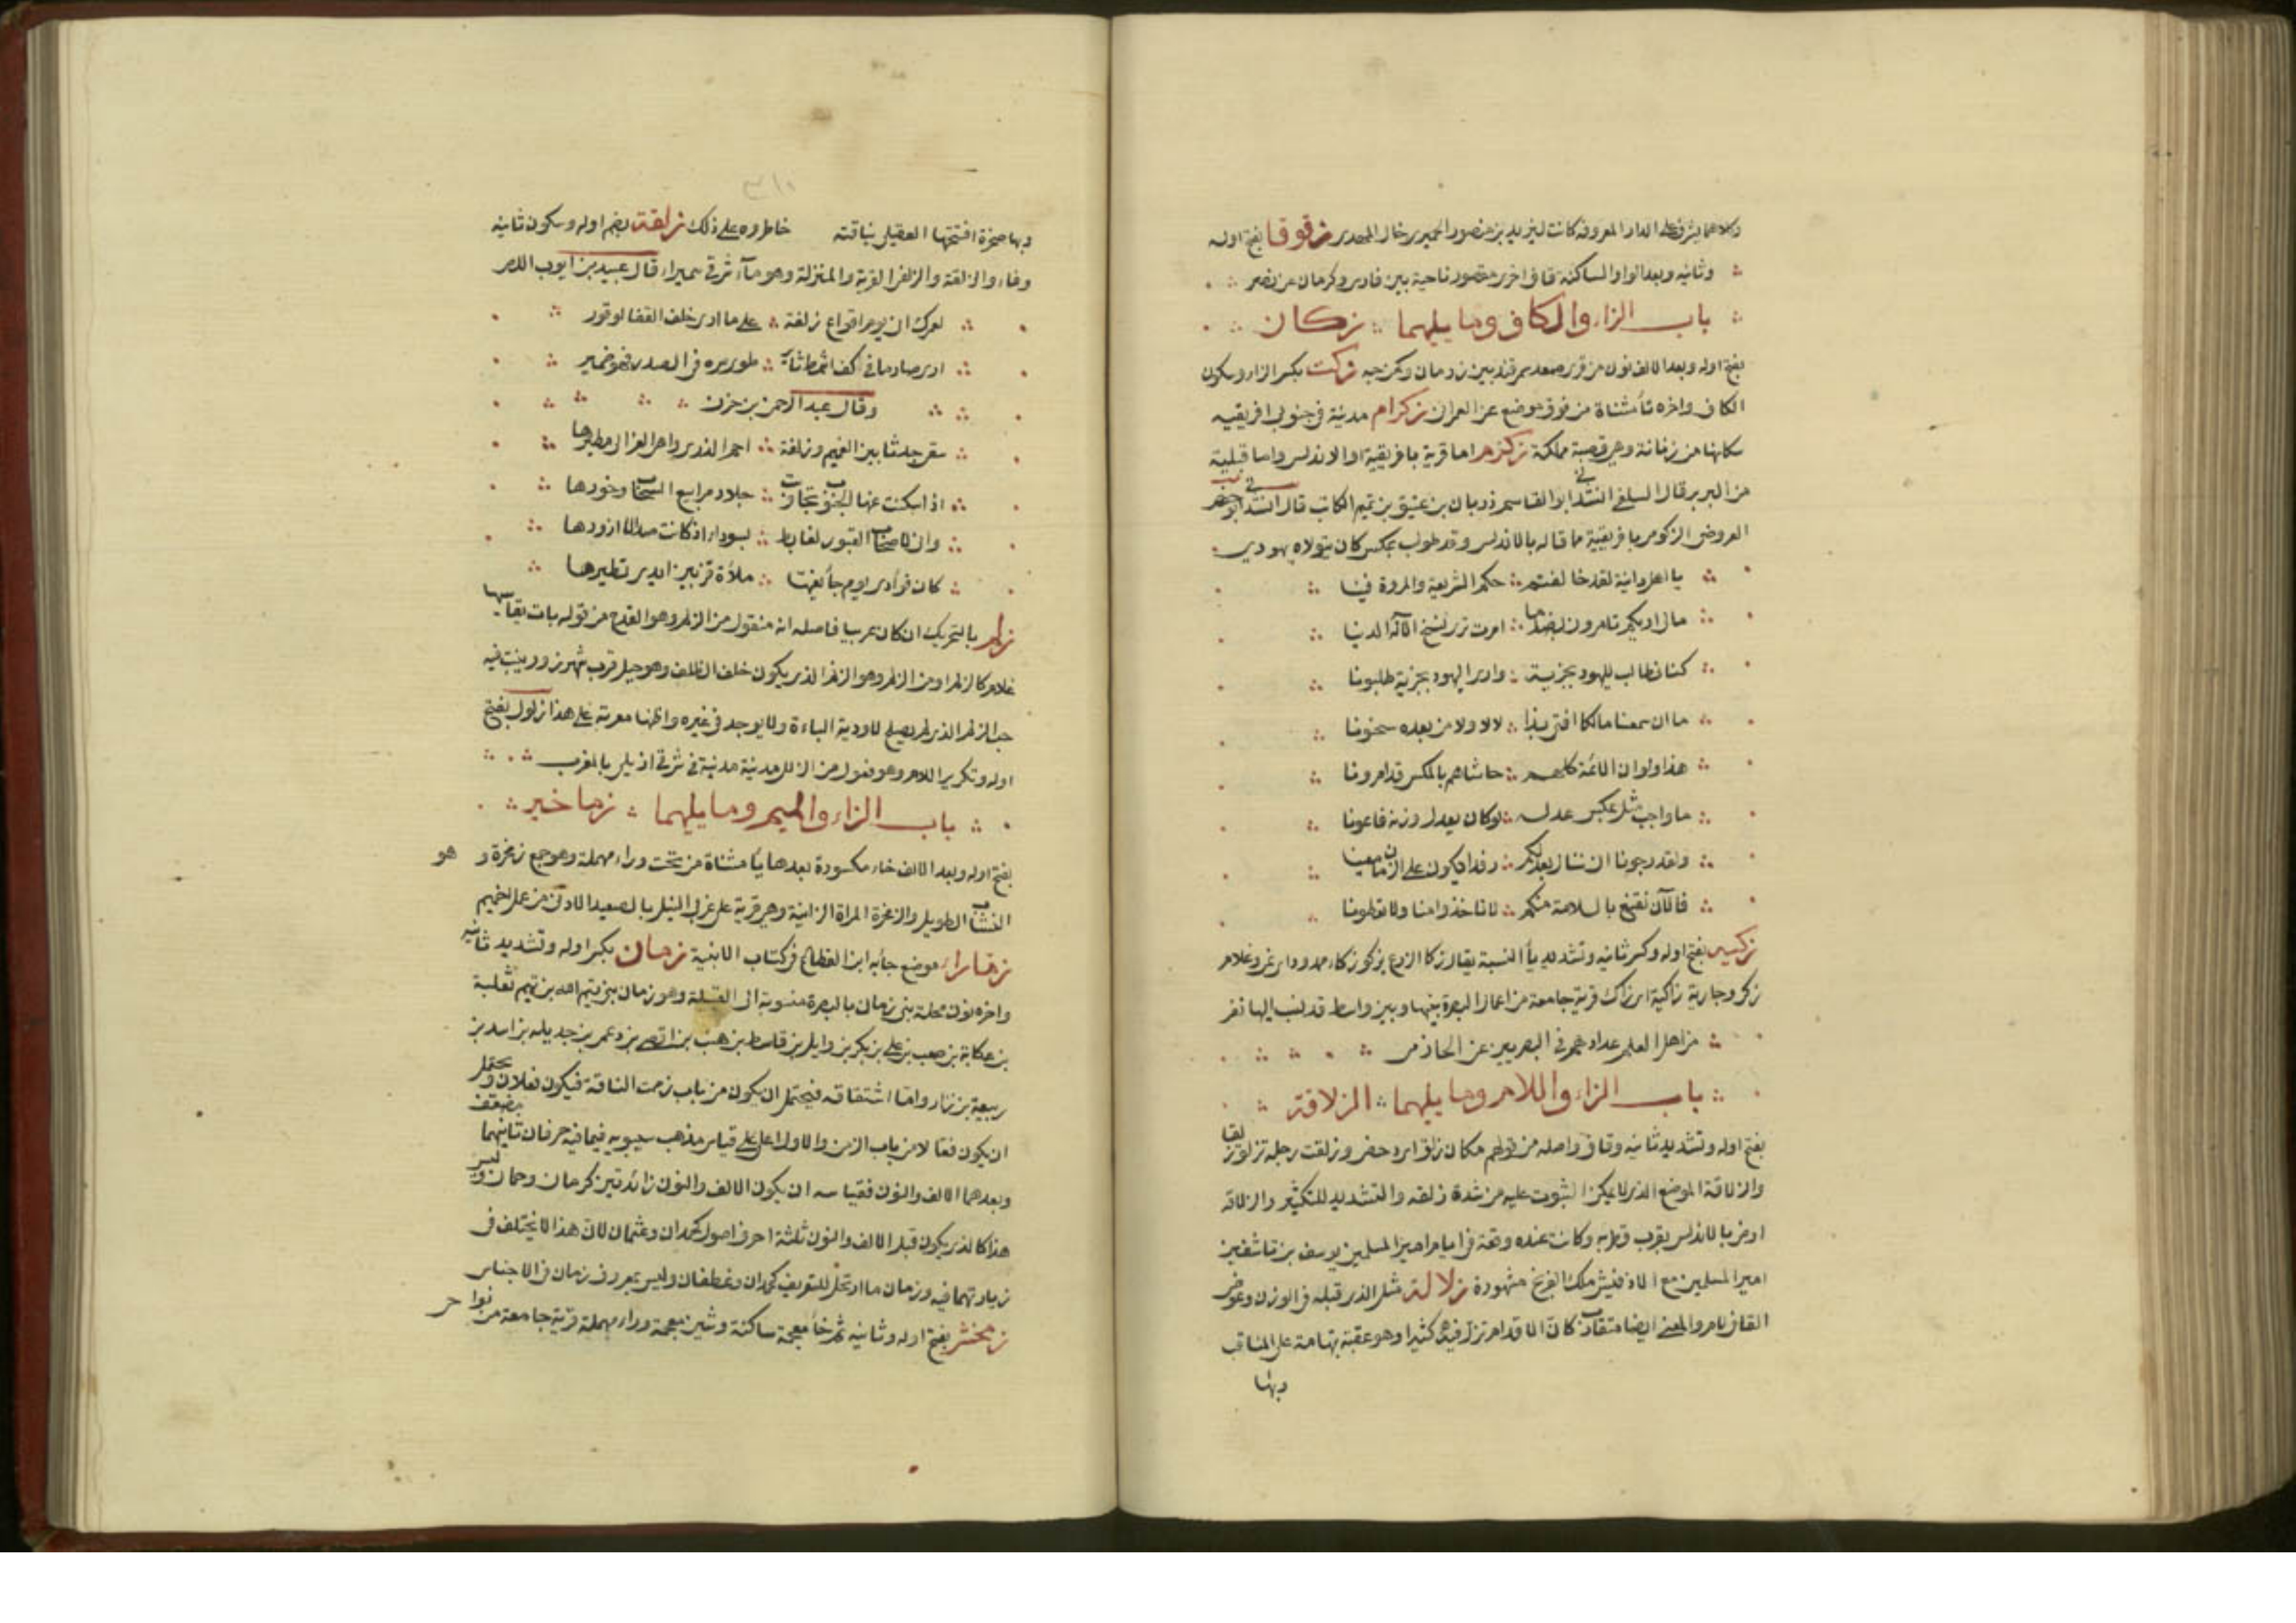 وكلاهما يشرف على الدار المعروفة كانت ليزيد بن منصور الحميري خال المهدي زقوقا بفتح اوله
وثانيه وبعد الواو الساكنة قاف اخرى مقصور ناحية بين فارس وكرمان عن نصر
باب الزاء والكاف وما يليهما زكان
بفتح اوله وبعد الالف نون من قرى صغد سمرقند بين زرمان وكمرجه زكت بكسر الزاء وسكون
الكاف واخره تاء مثناة من فوق موضع عن العمراني زكرام مدينة في جنوبي افريقيه
سكانها من زغانة وهي قصبة مملكة زكرم اما قرية بافريقية او الاندلس واما قبيلة
من البربر قال السلفي انشدني ابو القاسم ذربان بن عتيق بن تميم الكاتب قال انشدني ابو حفص
العروضي الزكرمي بافريقية مما قاله بالاندلس وقد طولب بمكس كان يتولاه يهودي
يا اهل دانية لقد خالفتم حكم الشريعة والمروة فينا
مالي اراكم تامرون بضد ما امرت ترى نسخ الاله الدينا
كنا نطالب لليهود بجزية وارى اليهود بجزية طلبونا
ما ان سمعنا مالكا افتى بذا لا لا ولا من بعده سحنونا
هذا ولو ان الائمة كلهم حاشاهم بالمكس قد امرونا
ما واجب مثلي عكس عدله لو كان يعدل وزنه قاعونا
ولقد رجونا ان ننال بعدلكم رفدا يكون على الزمان معينا
فالآن نقنع بالسلامة منكم لا تاخذوا منا ولا تعطونا
زكيه بفتح اوله وكسر ثانيه وتشديد ياء النسبة يقال زكا الزرع يزكو زكاء ممدود اي نمى وغلام
زكي وجارية زاكية اي زاك قرية جامعة من اعمال البصرة بينها وبين واسط قد نسب اليها نفر
من اهل العلم عدادهم في البصريين عن الحازمي
باب الزاء واللام وما يليهما الزلاقة
بفتح اوله وتشديد ثانيه وقاف واصله من قولهم مكان زلق اي دحض وزلقت رجله تزلق زلقا
والزلاقة الموضع الذي لا يمكن الثبوت عليه من شدة زلقه والتشديد للتكثير والزلاقة
ارض بالاندلس بقرب قرطبه وكانت عنده وقعة في ايام امير المسلمين يوسف بن تاشفين
امير المسلمين مع الاذفنش ملك الفرنج مشهورة زلالة مثل الذي قبله في الوزن وعوض
القاف لام والمعنى ايضا متقارب كان الاقدام تزل فيه كثيرا وهو عقبة بتهامة على المناقب
وبها
وبها صخرة افتحمها العقيلي بناقته خاطروه على ذلك زلفة بضم اوله وسكون ثانيه
وفاء والزلفة والزلفى القربة والمنزلة وهو ماء شرقي سميراء قال عبيد بن ايوب اللص
لعمرك اني يوم اقواع زلفة على ما ارى خلف القفا لوقور
ارى صارما في كف اشمط ثائر طوى سره في الصدر فهو ضمير
وقال عبد الرحمن بن حزن
سقى جدثا بين الغميم وزلفة احم الذرى واهي العزالي مطيرها
اذا سكنت عنها الجنوب تجاوبت جلاد مرابيع السحاب وخورها
واني لاصحاب القبور لغابط بسوداء اذ كانت صدا لا ازورها
كان فؤادي يوم جاء نعيها ملاءة قز بين ايدي تطيرها
زلم بالتحريك ان كان عربيا فاصله انه منقول من الزلم وهو القدح من قوله بات يقاسيها
غلام كالزلم او من الزلم وهو الزمع الذي يكون خلف الظلف وهو جبل قرب شهرزور ينبت فيه
حب الزلم الذي يصلح لادوية الباءة ولا يوجد في غيره واظنها معربة على هذا زلول بفتح
اوله وتكرير اللام وهو فعول من الزلل مدينة مدينة في شرقي ازيلى بالمغرب
باب الزاء والميم وما يليهما زماخير
بفتح اوله وبعد الالف خاء مكسورة بعدها ياء مثناة من تحت وراء مهملة وهو جمع زمخرة و هو
النشاب الطويل والزمخرة المراة الزانية وهي قرية على غربي النيل بالصعيد الادنى من عمل اخميم
زمارا موضع جاء به ابن القطاع في كتاب الابنية زمان بكسر اوله وتشديد ثانيه
واخره نون محلة بني زمان بالبصرة منسوبة الى القبيلة وهو زمان بن تيم الله بن ثعلبة
بن عكابة بن صعب بن علي بن بكر بن وايل بن قاسط بن هنب بن افصى بن دعمي بن جديله بن اسد بن
ربيعة بن نزار واما اشتقاقه فيحتمل ان يكون من باب زممت الناقة فيكون فعلان ويحتمل
ان يكون فعالا من باب الزمن والاول اعلى على قياس مذهب سيبويه فيما فيه حرفان ثانيهما مضعف
وبعدهما الالف والنون فقياسه ان يكون الالف والنون زائدتين كرمان وحمان وليس
هذا كالذي يكون قبل الالف والنون ثلثة احرف اصول كحمدان وعثمان لان هذا لا يختلف في
زيادتهما فيه وزمان مما ارتجل للتعريف كحمدان وغطفان وليس بمعروف زمان في الاجناس
زمخشر بفتح اوله وثانيه ثم خاء معجمة ساكنة وشين معجمة وراء مهملة قرية جامعة من نواحي